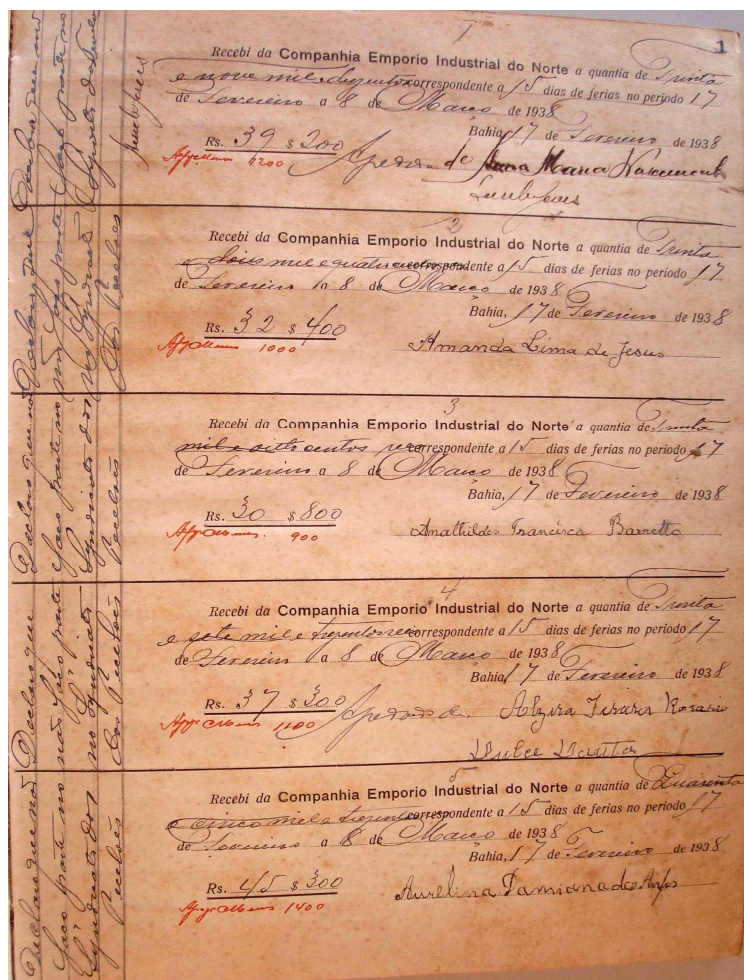 1
1
Recebi da Companhia Emporio Industrial do Norte a quantia de Trinta
e nove mil duzentos correspondente a 15 dias de ferias no periodo 17
de Fevereiro a 8 de Março de 1938
Bahia, 17 de Fevereiro de 1938
Rs. 39 $ 200
1200
Apedido de Anna Maria Nascimento
2
Recebi da Companhia Emporio Industrial do Norte a quantia de Trinta
e dois mil e quatrocentos correspondente a 15 dias de ferias no periodo 17
de Fevereiro a 8 de Março de 1938
Bahia, 17 de Fevereiro de 1938
Rs. 32 $ 400
1000
Amanda Lima de Jesus
3
Recebi da Companhia Emporio Industrial do Norte a quantia de Trinta
mil e oito centos reis correspondente a 15 dias de ferias no periodo 17
de Fevereiro a 8 de Março de 1938
Bahia, 17 de Fevereiro de 1938
Rs. 30 $ 800
900
Anathildes Francisca Barretto
4
Recebi da Companhia Emporio Industrial do Norte a quantia de Trinta
e sete mil e trezentos reis correspondente a 15 dias de ferias no periodo 17
de Fevereiro a 8 de Março de 1938
Bahia, 17 de Fevereiro de 1938
Rs. 37 $ 300
1100
Apedido de Alzira Rosario
Dulce Dantas
5
Recebi da Companhia Emporio Industrial do Norte a quantia de Quarenta
e cinco mil e trezentos correspondente a 15 dias de ferias no periodo 17
de Fevereiro a 8 de Março de 1938
Bahia, 17 de Fevereiro de 1938
Rs. 45 $ 300
1400
Aurelina Damiana dos Anjos
Declaro que não
faço parte no
Syndicato dos
Pecelões
Declaro que
não faço parte
no Syndicato
dos Pecelões
Declaro que não
faço parte no
Syndicato dos
Pecelões
Declaro que
não faço parte
no Syndicato
dos Pecelões
Declaro que não
faço parte no
Syndicato de